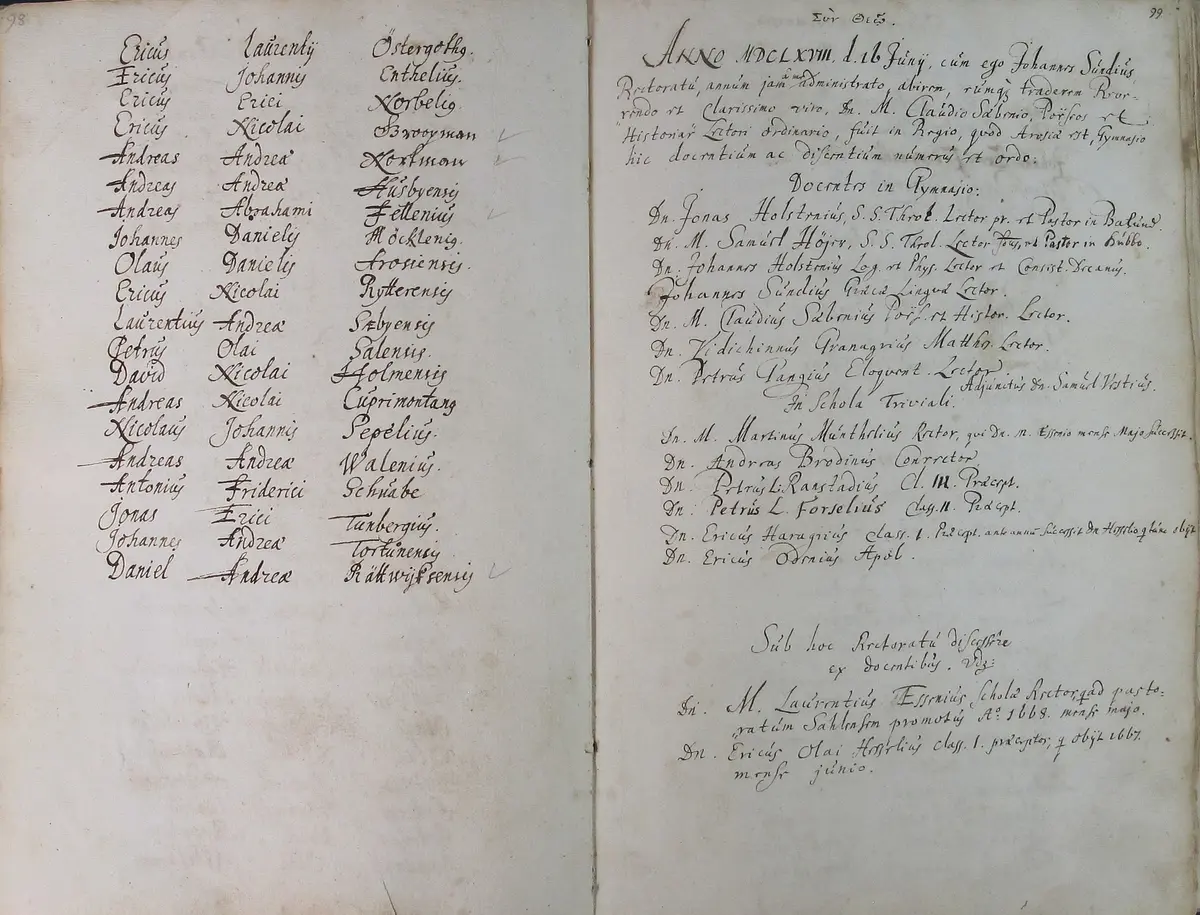 98
Ericus Laurentij Östergothg.
Ericus Johannis Enthelius.
Ericus Erici Norbelig.
Ericus Nicolai Brooyman
Andreas Andreæ Norkman
Andreas Andreæ Husbyensis
Andreas Abrahami Fellenius
Johannes Danielis Höcklenig.
Olaus Danielis Arosiensis.
Ericus Nicolai Rytterensis
Laurentius Andreæ Sæbyensis
Petrus Olai Salensis.
David Nicolai Holmensis
Andreas Nicolai Cuprimontang
Nicolaus Johannis Pepelius.
Andreas Andreæ Walenius.
Antonius Friderici Schnabe
Jonas Erici Tunbergius.
Johannes Andreæ Tortunensis
Daniel Andreæ Rättwijksensis
99
Σὺν Θεῷ.
ANNO MDCLXVIII. d. 16 Junij, cum ego Johannes Sundius,
Rectoratu, annum jam administrato, abirem, eumq; traderem Reve-
rendo et Clarissimo viro, Dn. M. Claudio Sæbenio, Poëseos et
Historiar Lectori ordinario, fuit in Regio, quod Arosiæ est, Gymnasio
hic docentium ac discentium numerus et ordo.
Docentes in Gymnasio:
Dn. Jonas Holstenius, S. S. Theol. Lector pr. et Pastor in
Dn. M. Samuel Höjer, S. S. Theol. Lector et Pastor in Hubbo.
Dn. Johannes Holstenius Log. et Phys. Lector et Consist. Decanus.
Johannes Sundius Græcæ Linguæ Lector.
Dn. M. Claudius Sæbenius Poës. et Histor. Lector.
Dn. Vidichinnus Granagrius Matth. Lector.
Dn. Petrus Gangius Eloquent. Lector
Adjunctus Dn. Samuel Vestius.
In Schola Triviali.
Dn. M. Martinus Munthelius Rector, qui Dn. M. Essenio mense Majo successit.
Dn. Andreas Brodinus Conrector
Dn. Petrus L. Ranstadius Cl. III. Præcept.
Dn. Petrus L. Forselius Class. II. Præcept.
Dn. Ericus Haragrius class. 1. Præcept. ante annū successit Dn Hesselio
Dn. Ericus Odenius Apol.
Sub hoc Rectoratu discessere
ex docentibus. Vdz:
Dn. M. Laurentius Essenius, Scholæ Rector, ad pasto-
ratum Sahlensem promotus Ao. 1668. mense majo.
Dn. Ericus Olai Hesselius class. 1. præceptor, q obijt 1667.
mense junio.